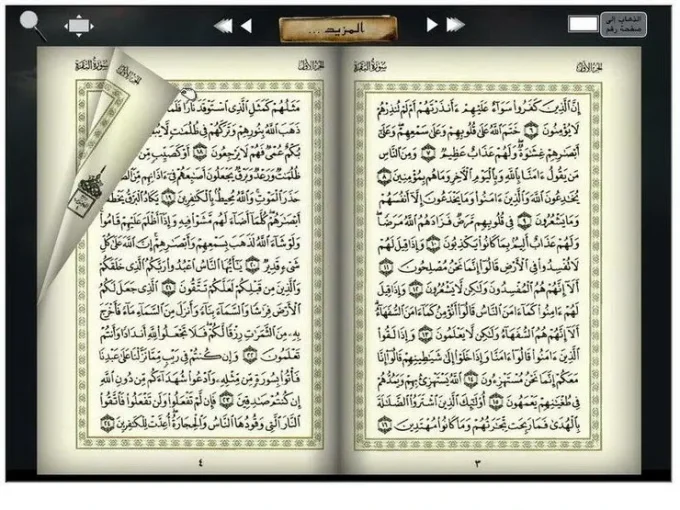 المزيد ...
الذهاب إلى
صفحة رقم
الجزء الأول
سورة البقرة
إِنَّ ٱلَّذِينَ كَفَرُوا۟ سَوَآءٌ عَلَيْهِمْ ءَأَنذَرْتَهُمْ أَمْ لَمْ تُنذِرْهُمْ
لَا يُؤْمِنُونَ ٦ خَتَمَ ٱللَّهُ عَلَىٰ قُلُوبِهِمْ وَعَلَىٰ سَمْعِهِمْ وَعَلَىٰٓ
أَبْصَٰرِهِمْ غِشَٰوَةٌ وَلَهُمْ عَذَابٌ عَظِيمٌ ٧ وَمِنَ ٱلنَّاسِ
مَن يَقُولُ ءَامَنَّا بِٱللَّهِ وَبِٱلْيَوْمِ ٱلْـَٔاخِرِ وَمَا هُم بِمُؤْمِنِينَ ٨
يُخَٰدِعُونَ ٱللَّهَ وَٱلَّذِينَ ءَامَنُوا۟ وَمَا يَخْدَعُونَ إِلَّآ أَنفُسَهُمْ
وَمَا يَشْعُرُونَ ٩ فِى قُلُوبِهِم مَّرَضٌ فَزَادَهُمُ ٱللَّهُ مَرَضًا
وَلَهُمْ عَذَابٌ أَلِيمٌۢ بِمَا كَانُوا۟ يَكْذِبُونَ ١٠ وَإِذَا قِيلَ لَهُمْ
لَا تُفْسِدُوا۟ فِى ٱلْأَرْضِ قَالُوٓا۟ إِنَّمَا نَحْنُ مُصْلِحُونَ ١١
أَلَآ إِنَّهُمْ هُمُ ٱلْمُفْسِدُونَ وَلَٰكِن لَّا يَشْعُرُونَ ١٢ وَإِذَا قِيلَ
لَهُمْ ءَامِنُوا۟ كَمَآ ءَامَنَ ٱلنَّاسُ قَالُوٓا۟ أَنُؤْمِنُ كَمَآ ءَامَنَ ٱلسُّفَهَآءُ
أَلَآ إِنَّهُمْ هُمُ ٱلسُّفَهَآءُ وَلَٰكِن لَّا يَعْلَمُونَ ١٣ وَإِذَا لَقُوا۟
ٱلَّذِينَ ءَامَنُوا۟ قَالُوٓا۟ ءَامَنَّا وَإِذَا خَلَوْا۟ إِلَىٰ شَيَٰطِينِهِمْ قَالُوٓا۟ إِنَّا
مَعَكُمْ إِنَّمَا نَحْنُ مُسْتَهْزِءُونَ ١٤ ٱللَّهُ يَسْتَهْزِئُ بِهِمْ وَيَمُدُّهُمْ
فِى طُغْيَٰنِهِمْ يَعْمَهُونَ ١٥ أُو۟لَٰٓئِكَ ٱلَّذِينَ ٱشْتَرَوُا۟ ٱلضَّلَٰلَةَ
بِٱلْهُدَىٰ فَمَا رَبِحَت تِّجَٰرَتُهُمْ وَمَا كَانُوا۟ مُهْتَدِينَ ١٦
٣
سورة البقرة
الجزء الأول
مَثَلُهُمْ كَمَثَلِ ٱلَّذِى ٱسْتَوْقَدَ نَارًا فَلَمَّآ
ذَهَبَ ٱللَّهُ بِنُورِهِمْ وَتَرَكَهُمْ فِى ظُلُمَٰتٍ لَّا
بُكْمٌ عُمْىٌ فَهُمْ لَا يَرْجِعُونَ ١٨ أَوْ كَصَيِّبٍ مِّنَ
ظُلُمَٰتٌ وَرَعْدٌ وَبَرْقٌ يَجْعَلُونَ أَصَٰبِعَهُمْ فِىٓ ءَاذَانِهِم مِّنَ
حَذَرَ ٱلْمَوْتِ وَٱللَّهُ مُحِيطٌۢ بِٱلْكَٰفِرِينَ ١٩ يَكَادُ ٱلْبَرْقُ يَخْطَفُ
أَبْصَٰرَهُمْ كُلَّمَآ أَضَآءَ لَهُم مَّشَوْا۟ فِيهِ وَإِذَآ أَظْلَمَ عَلَيْهِمْ قَامُوا۟
وَلَوْ شَآءَ ٱللَّهُ لَذَهَبَ بِسَمْعِهِمْ وَأَبْصَٰرِهِمْ إِنَّ ٱللَّهَ عَلَىٰ كُلِّ
شَىْءٍ قَدِيرٌ ٢٠ يَٰٓأَيُّهَا ٱلنَّاسُ ٱعْبُدُوا۟ رَبَّكُمُ ٱلَّذِى خَلَقَكُمْ
وَٱلَّذِينَ مِن قَبْلِكُمْ لَعَلَّكُمْ تَتَّقُونَ ٢١ ٱلَّذِى جَعَلَ لَكُمُ
ٱلْأَرْضَ فِرَٰشًا وَٱلسَّمَآءَ بِنَآءً وَأَنزَلَ مِنَ ٱلسَّمَآءِ مَآءً فَأَخْرَجَ
بِهِۦ مِنَ ٱلثَّمَرَٰتِ رِزْقًا لَّكُمْ فَلَا تَجْعَلُوا۟ لِلَّهِ أَندَادًا وَأَنتُمْ
تَعْلَمُونَ ٢٢ وَإِن كُنتُمْ فِى رَيْبٍ مِّمَّا نَزَّلْنَا عَلَىٰ عَبْدِنَا
فَأْتُوا۟ بِسُورَةٍ مِّن مِّثْلِهِۦ وَٱدْعُوا۟ شُهَدَآءَكُم مِّن دُونِ ٱللَّهِ
إِن كُنتُمْ صَٰدِقِينَ ٢٣ فَإِن لَّمْ تَفْعَلُوا۟ وَلَن تَفْعَلُوا۟ فَٱتَّقُوا۟
ٱلنَّارَ ٱلَّتِى وَقُودُهَا ٱلنَّاسُ وَٱلْحِجَارَةُ أُعِدَّتْ لِلْكَٰفِرِينَ ٢٤
٤